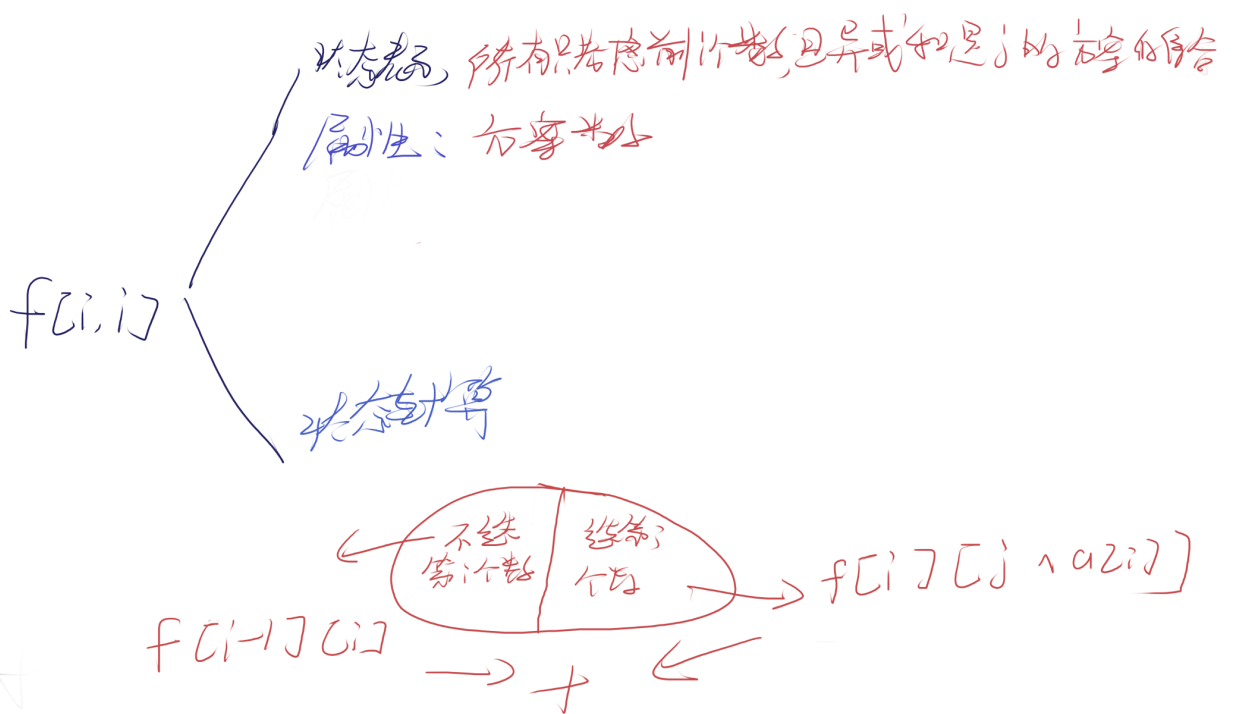 状态表示, 所有只考虑前i个数,且异或和是j的方案的集合
属性: 方案数
f[i,j]
状态计算
不选 选第i
第i个数 个数
f[i][j^a[i]]
f[i-1][j]
+